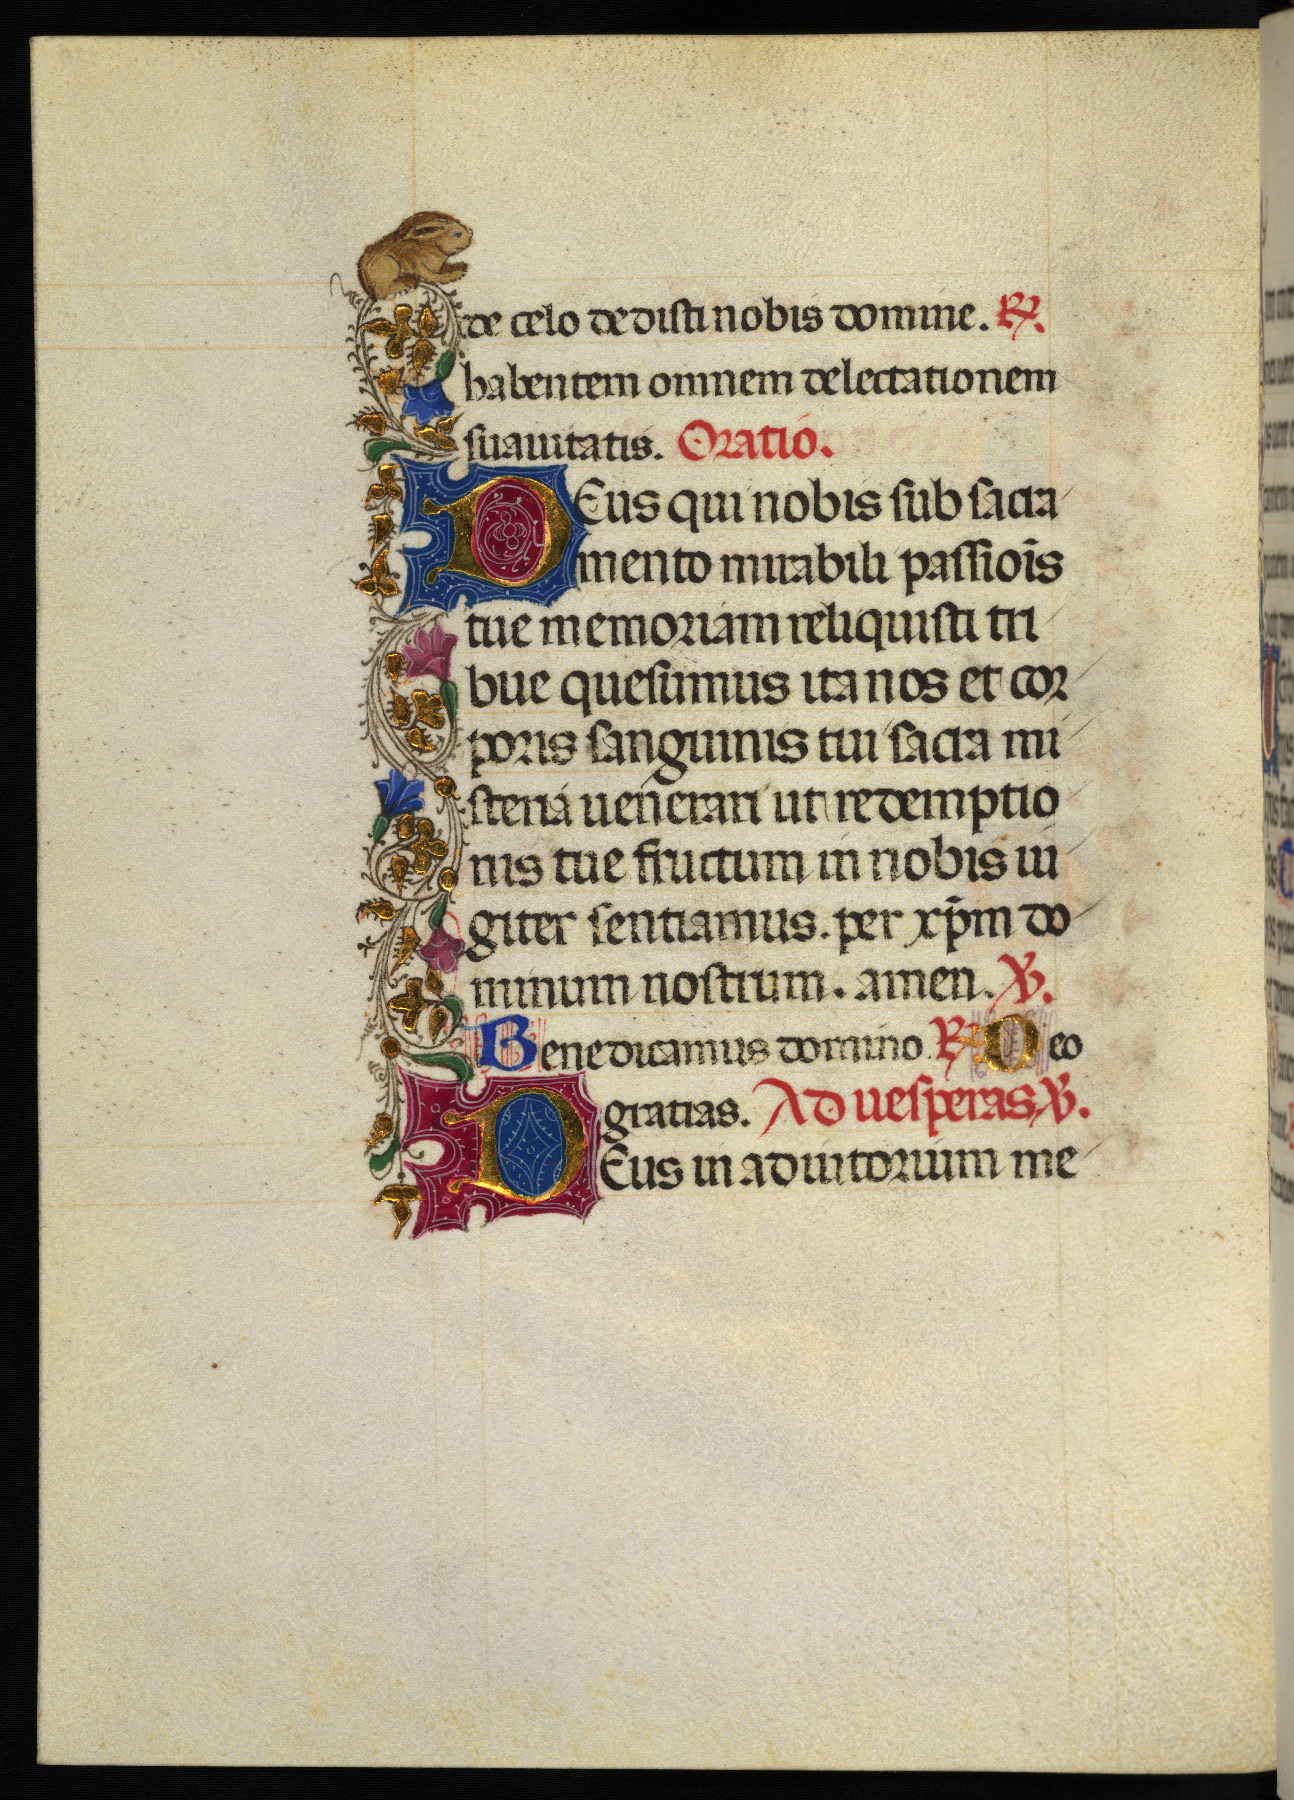 de celo dedisti nobis domine. ℟.
habentem omnem delectationem
suauitatis. Oratio.
DEus qui nobis sub sacra
mento mirabili passiōis
tue memoriam reliquisti tri
bue quesumus ita nos et cor
poris sanguinis tui sacra mi
steria uenerari ut redemptio
nis tue fructum in nobis iu
giter sentiamus. per xp̄m do
minum nostrum. amen. ℣.
Benedicamus domino ℟ Deo
gratias. Ad uesperas. ℣.
DEus in adiutorium me